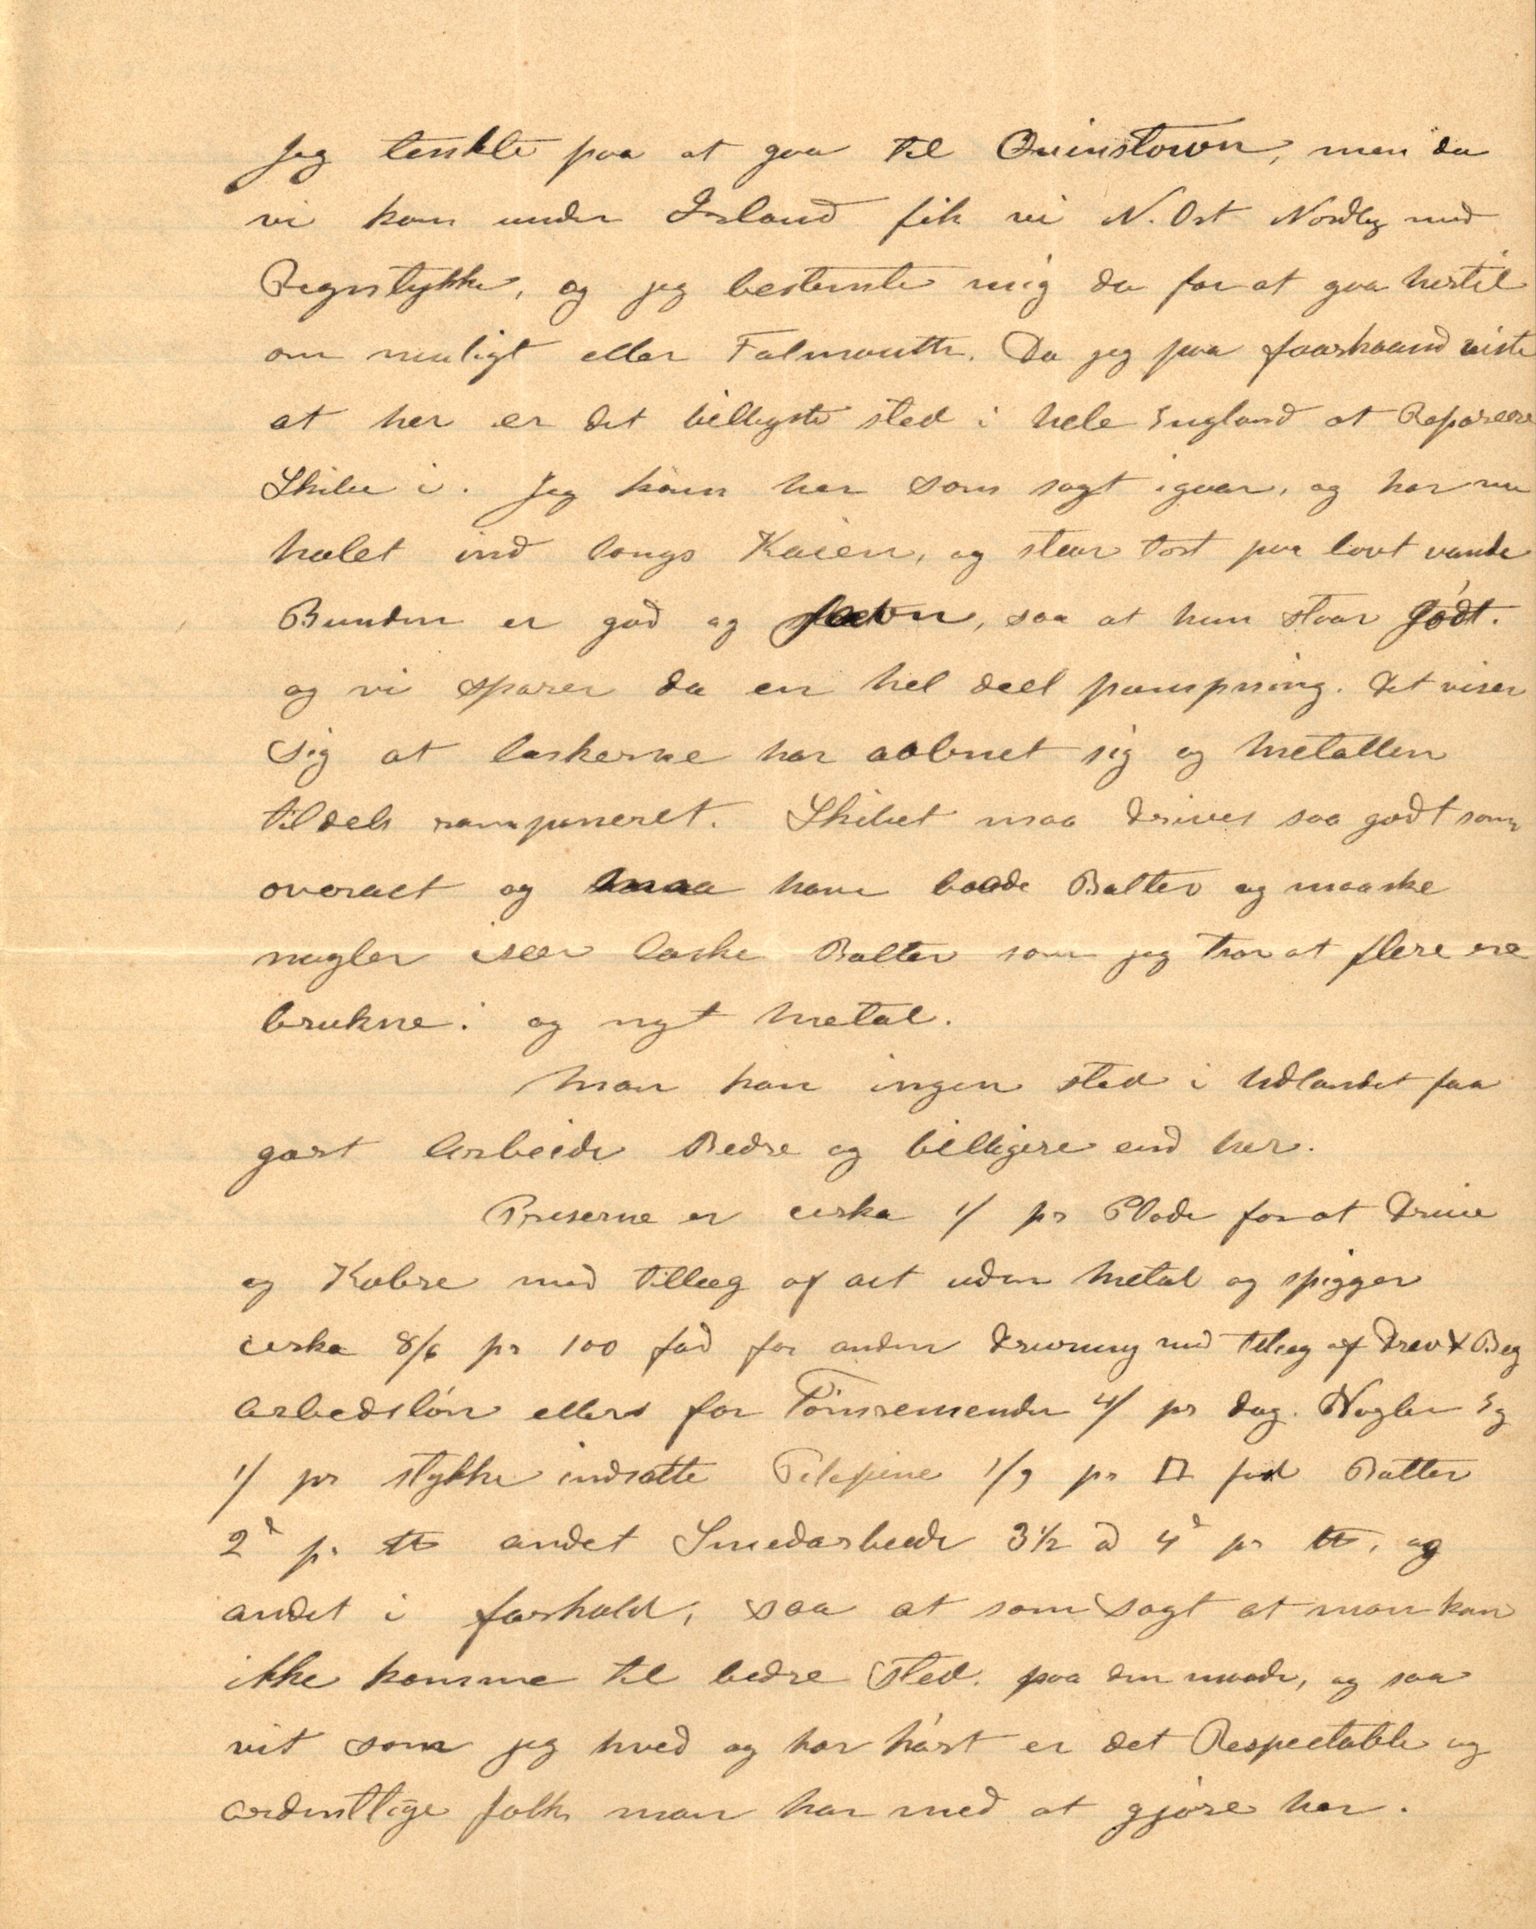 Jeg tenkte paa at gaa til Quinstown, men da
vi kom under Irland fik vi N. Ost Nordlig med
Regnstykke, og jeg bestemte mig da for at gaa hertil
om muligt eller Falmouth. Da jeg paa faarhaand viste
at her er det billigste sted i hele England at Reparere
Skibe i. Jeg kom her som sagt igaar, og har nu
halet ind langs Kaien, og staar tort paa lavt vande
Bunden er god og jævn, saa at hun staar godt.
og vi sparer da en hel deel pumpning. Det viser
sig at laskerne har aabnet sig og Metallen
tildels ramponeret. Skibet maa drives saa godt som
overalt og maa have baade Bolter og maaske
nagler især laske Bolter som jeg tror at flere ere
brukne. og nyt Metal.
Man kan ingen sted i Udlandet faa
gort Arbeide Bedre og billigere end her.
Priserne er cirka 1/ pr Plade for at Drive
og Kobre med tillæg af alt uden Metal og spigger
cirka 8/6 pr 100 fod for anden Drivning med tillæg af Drev & Beg
Arbedslön ellers for Tömremænder 4/ pr dag. Nagler Eg
1/ pr stykke indsatte Pitchpine 1/9 pr □ fod Bolter
2d pr ℔ andet Smedarbeide 3½ a 4d pr ℔, og
andet i forhold, saa at som sagt at man kan
ikke komme til bedre Sted. paa den maade, og saa
vit som jeg hved og har hört er det Respectable og
ordentlige folk man har med at gjöre her.